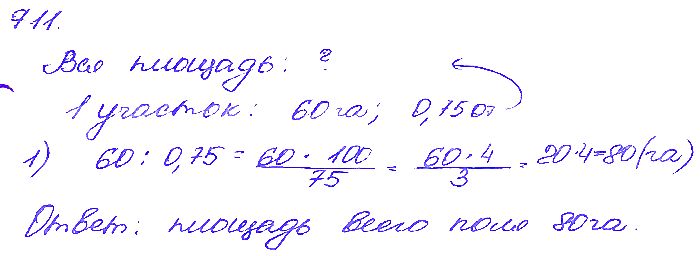 711.
Вся площадь: ?
1 участок: 60 га; 0,15 от
1) 60 : 0,75 = 60 · 100 / 75 = 60 · 4 / 3 = 20·4=80(га)
Ответ: площадь всего поля 80га.